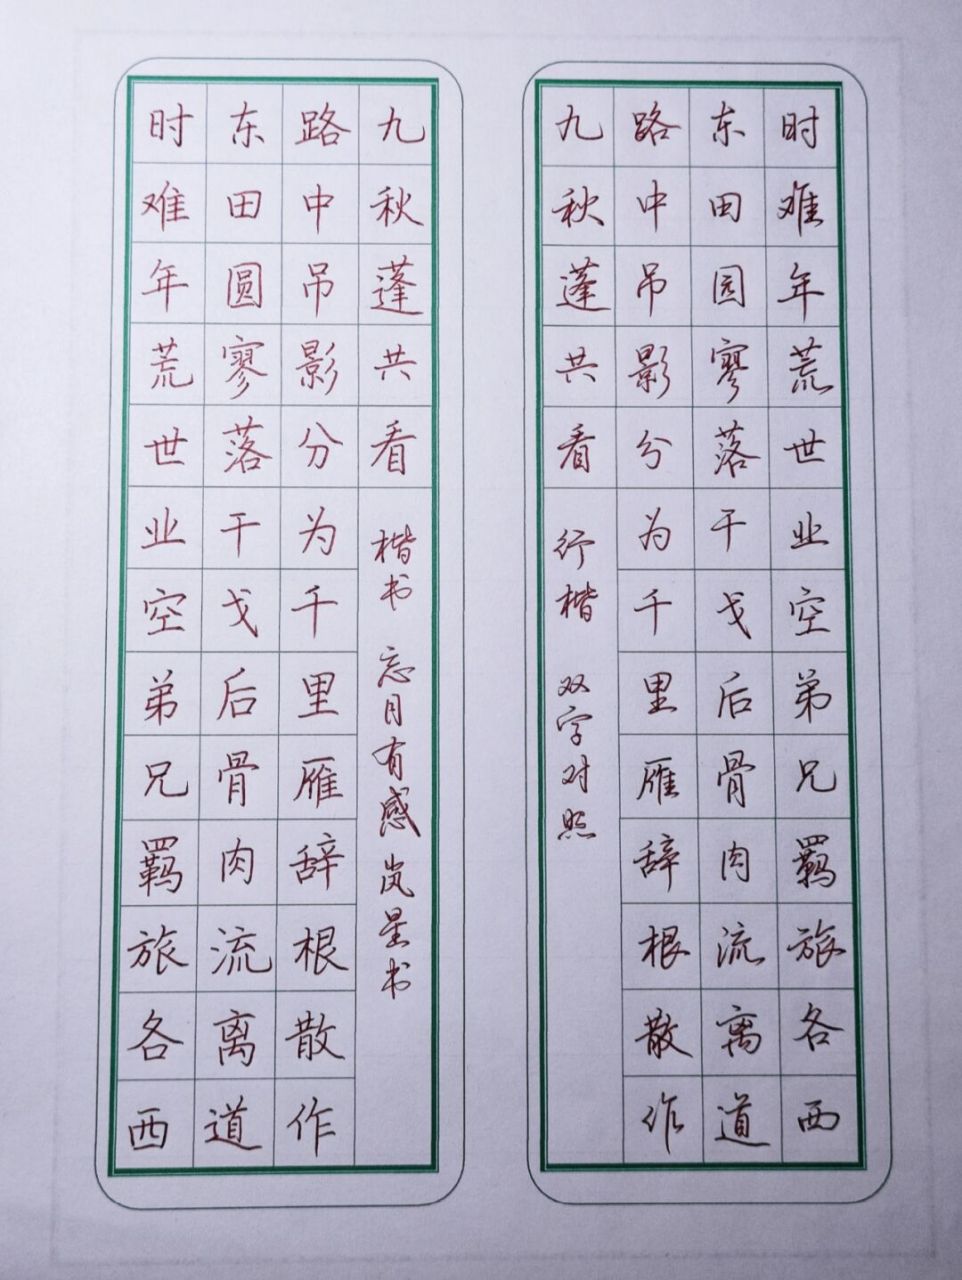 时难年荒世业空弟兄羁旅各西
东田圆寥落干戈后骨肉流离道
路中吊影分为千里雁辞根散作
九秋蓬共看
楷书 忘月有感 岚星书
时难年荒世业空弟兄羁旅各西
东田园寥落干戈后骨肉流离道
路中吊影分为千里雁辞根散作
九秋蓬共看
行楷 双字对照